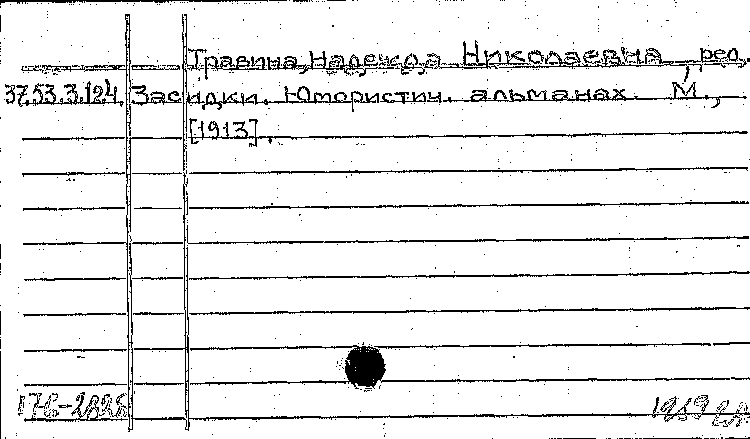 Травина, Надежда Николаевна, ред.
37.53.3.124. Засидки. Юмористич. альманах. М.,
[1913].